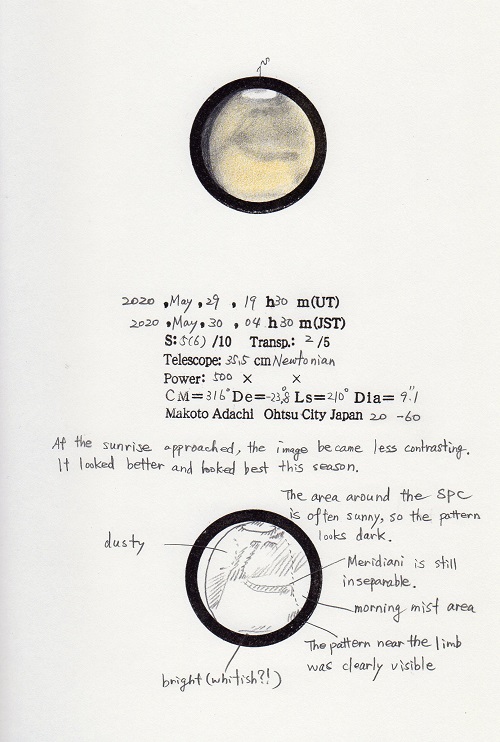 2020, May, 29, 19 h30 m(UT)
2020, May, 30, 04 h30 m(JST)
S:5(6) /10 Transp.: 2 /5
Telescope: 35.5 cm Newtonian
Power: 500 × ×
CM=316° De=-23.8° Ls=210° Dia= 9".1
Makoto Adachi Ohtsu City Japan 20 -60
At the sunrise approached, the image became less contrasting.
It looked better and looked best this season.
The area around the SPC
is often sunny, so the pattern
looks dark.
dusty
Meridiani is still
inseparable.
morning mist area
The pattern near the limb
was clearly visible
bright (whitish?!)